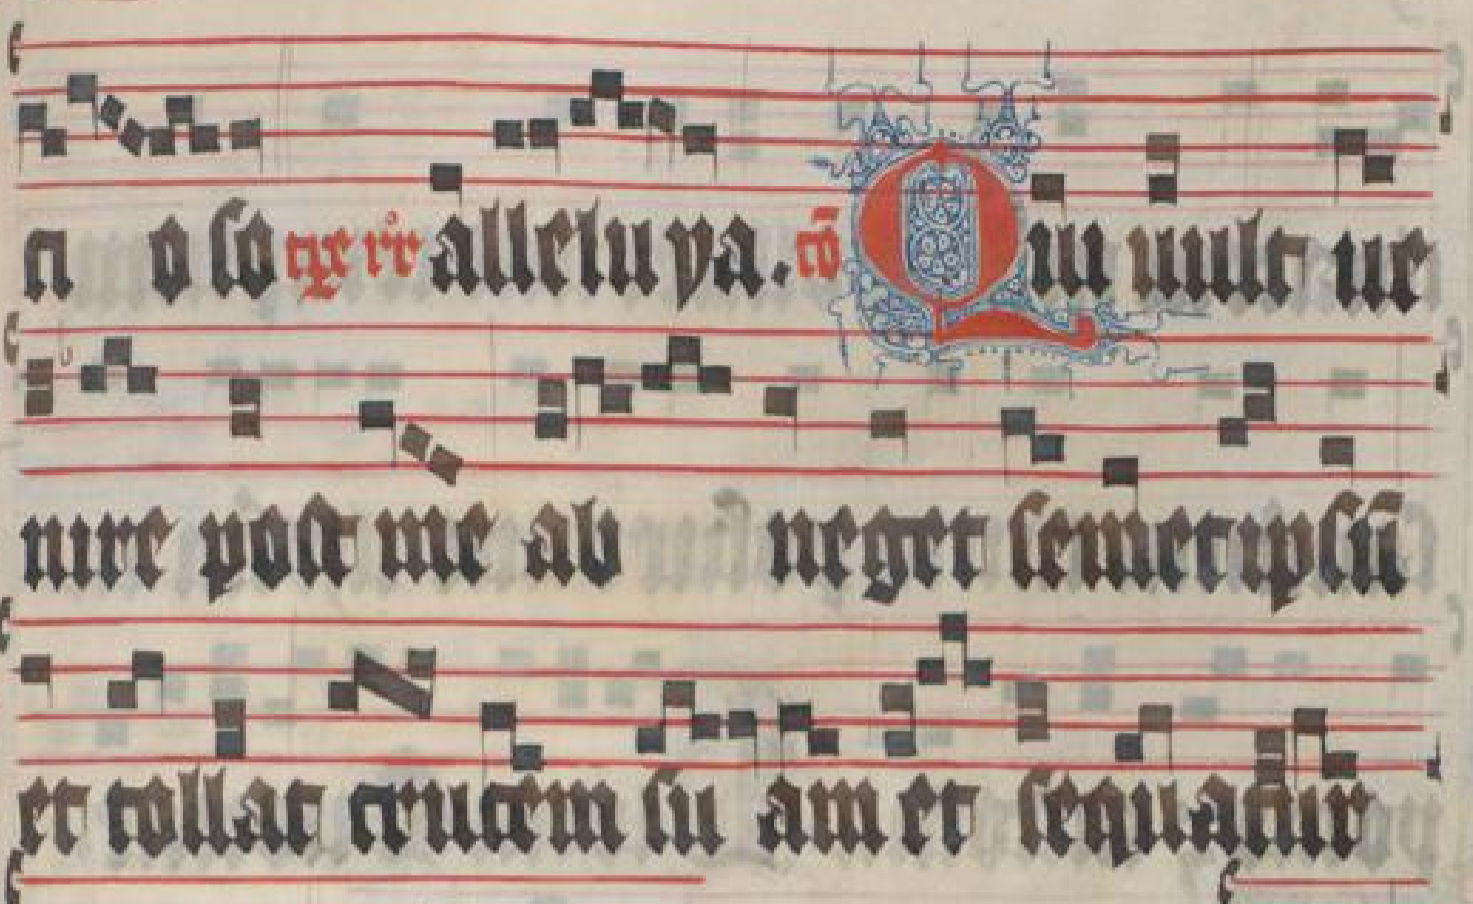 ci o so alleluya. cō Qui uult ue
nire post me ab neget semet ipsū
et tollat crucem su am et sequatur